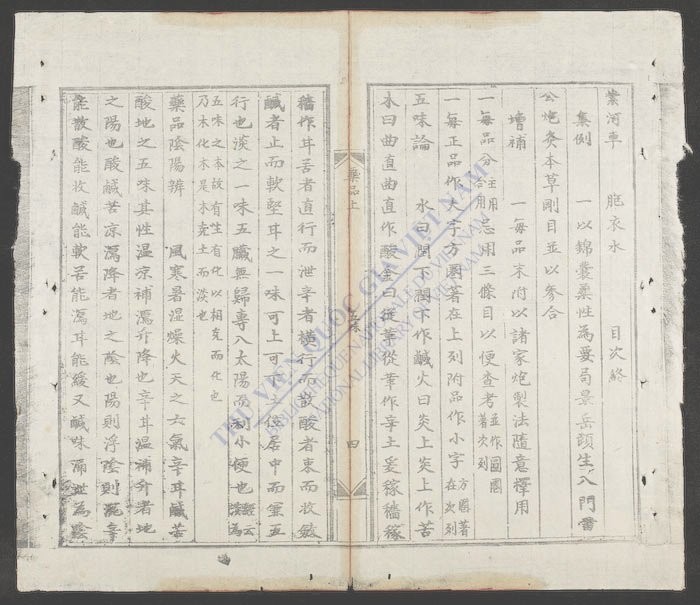 紫河車 胞衣水 目次終
集例 一以錦囊藥性為要局景岳頤生入門雷
公炮炙本草剛目並以參合
增補 一每品末附以諸家炮製法隨意擇用
一每品分註用合用忌用三條目以便查考並作圓圈著次列
一每正品作大字方圈著在上列附品作小字方圈著在次列
五味論 水曰閏下閏下作鹹火曰炎上炎上作苦
木曰曲直曲直作酸金曰從革從革作辛土爰稼穡稼
藥品上
五味
四
穡作耳苦者直行而泄辛者橫行而散酸者束而收斂
鹹者止而軟堅耳之一味可上可下之位居中而兼五
行也淡之一味五臟無歸專入太陽而利小便也經云淡為
五味之本故有生有化以相克而化也
乃木化木是木克土而淡也
藥品陰陽辨 風寒暑湿燥火天之六氣辛耳鹹苦
酸地之五味其性温涼補瀉升降也辛耳温補升者地
之陽也酸鹹苦凉瀉降者地之陰也陽則浮陰則沉辛
能散酸能收鹹能軟苦能瀉耳能緩又鹹味涌泄為陰
THƯ VIỆN QUỐC GIA VIỆT NAM
BIBLIOTHEQUE NATIONALE DU VIETNAM
NATIONAL LIBRARY OF VIETNAM